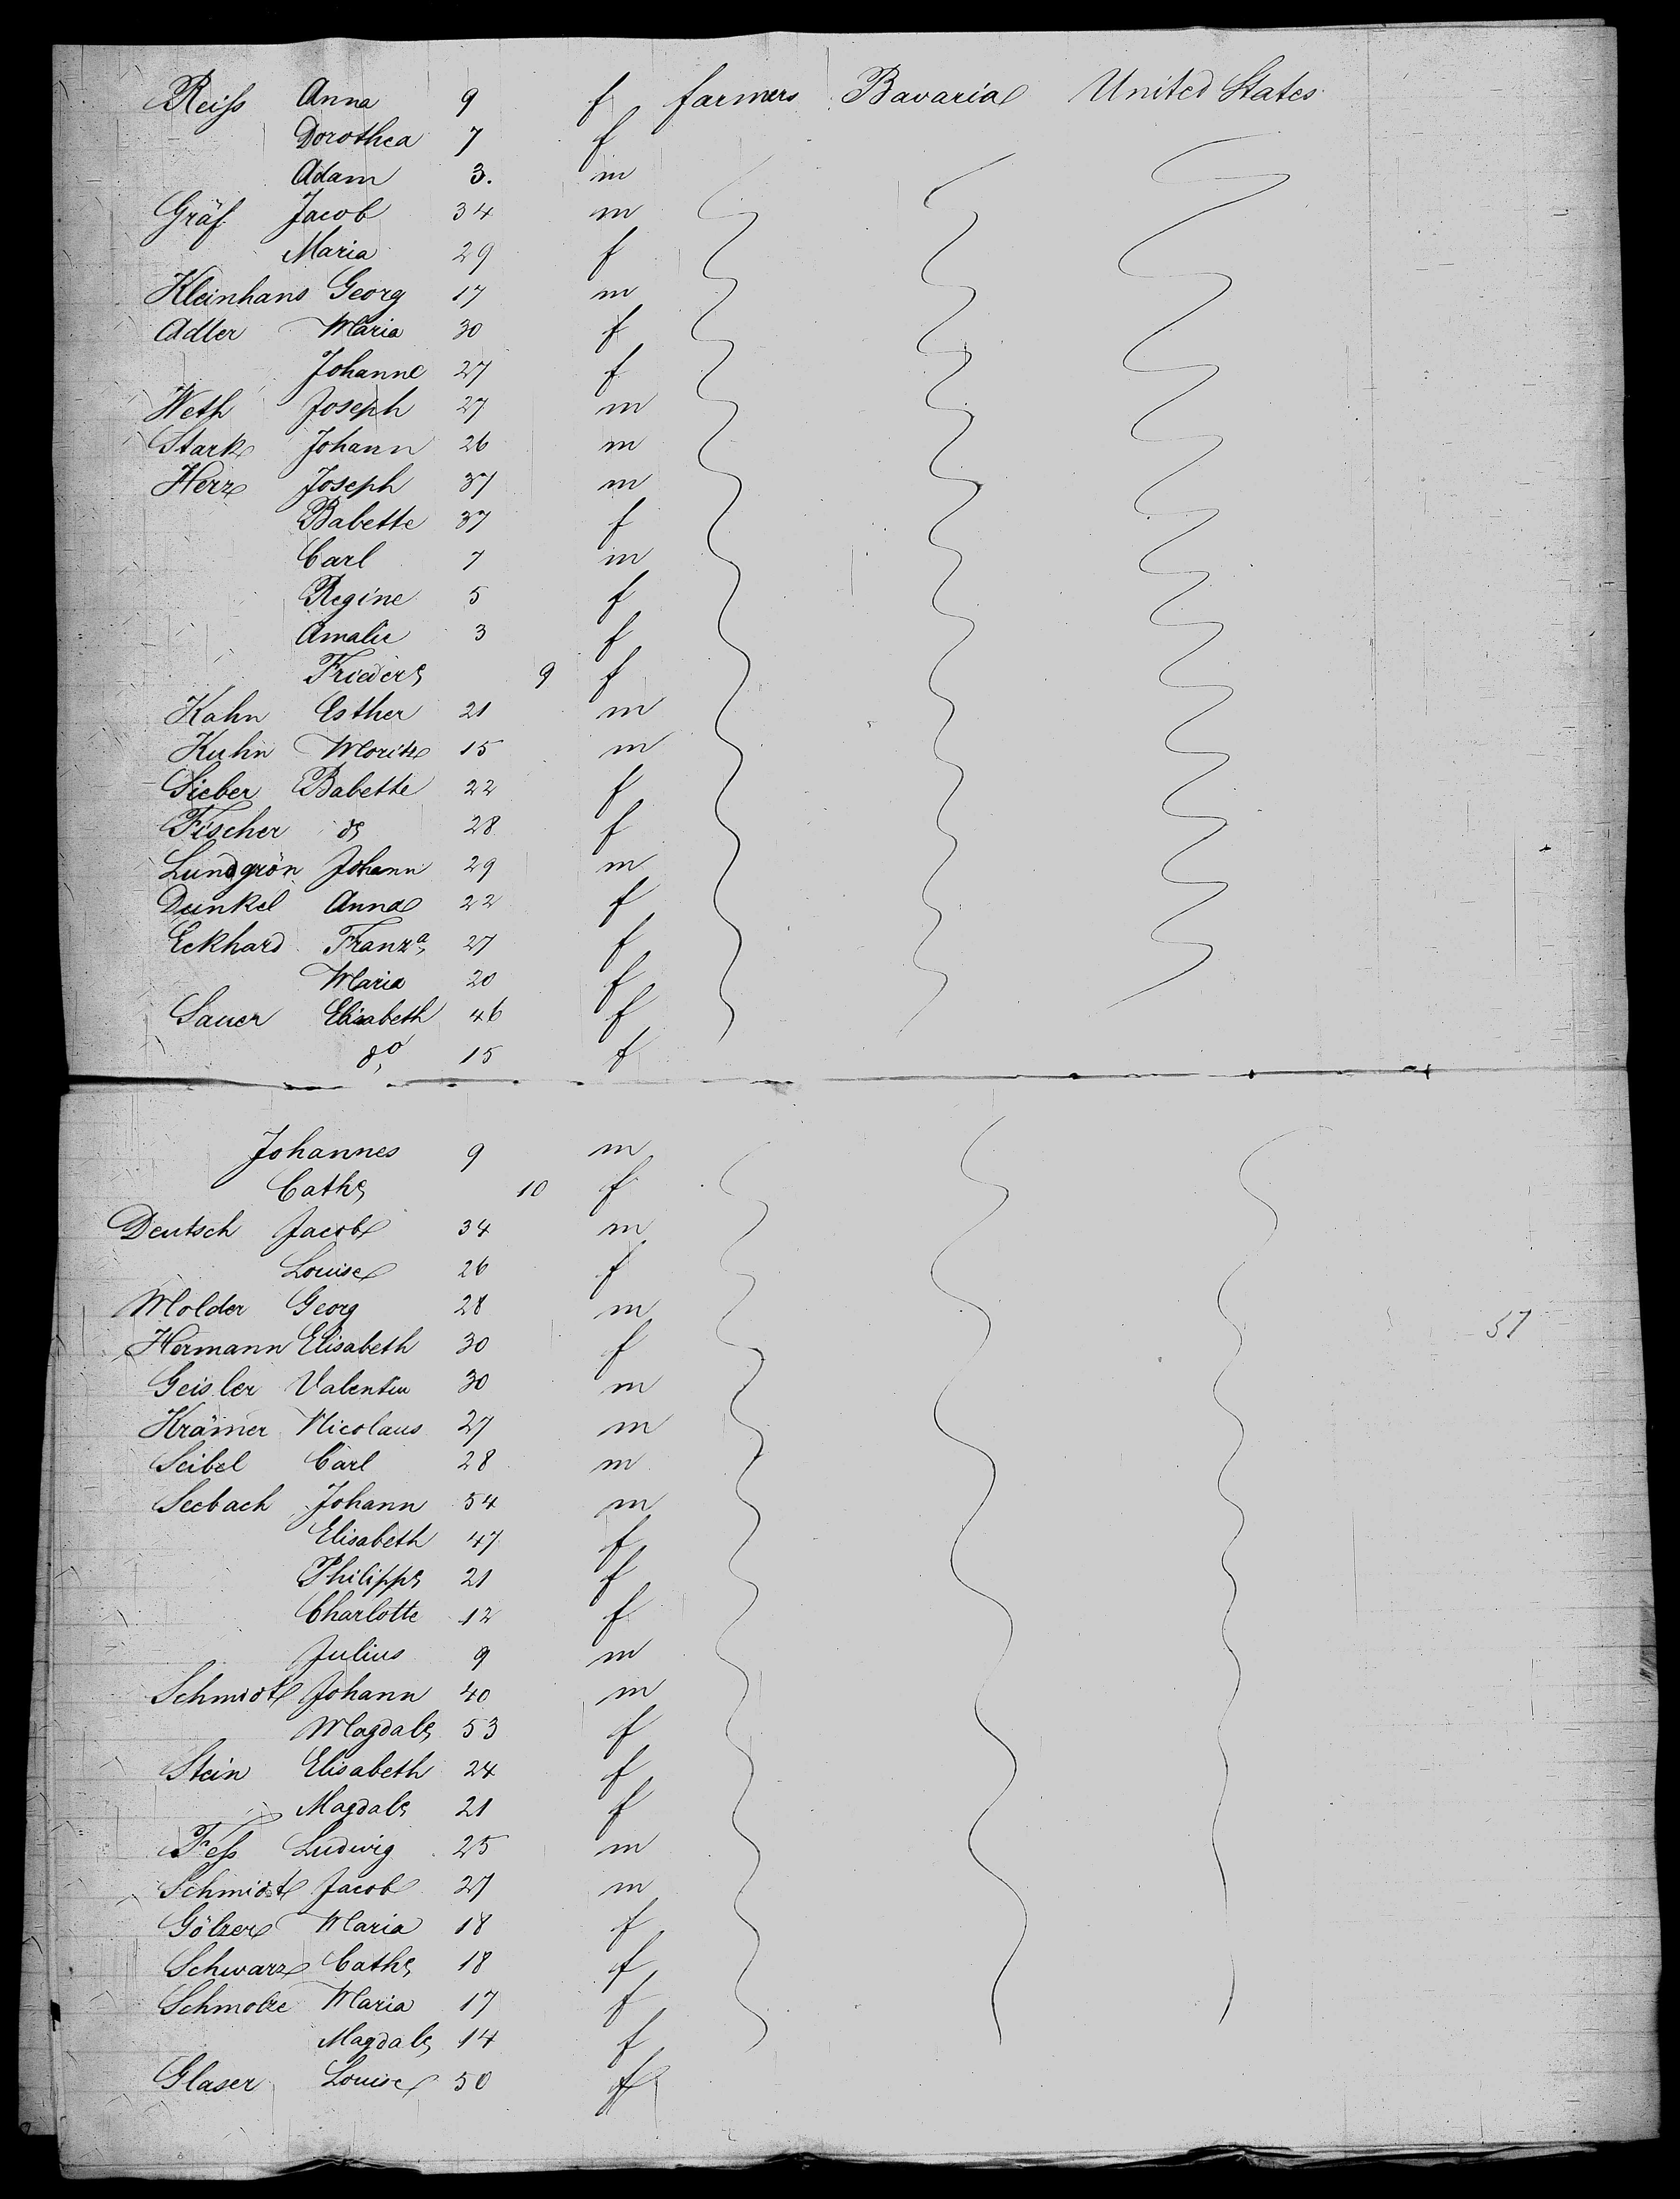 Reiss Anna 9 f farmers Bavaria United States
Dorothea 7 f
Adam 3. m
Gräf Jacob 34 m
Maria 29 f
Kleinhans Georg 17 m
Adler Maria 30 f
Johanne 27 f
Weth Joseph 27 m
Stark Johann 26 m
Herz Joseph 37 m
Babette 37 f
Carl 7 m
Regine 5 f
Amalie 3 f
Frieder 9 f
Kahn Esther 21 m
Kuhn Moritz 15 m
Sieber Babette 22 f
Fischer do 28 f
Lundgrön Johann 29 m
Dunkel Anna 22 f
Eckhard Franza 27 f
Maria 20 f
Sauer Elisabeth 46 f
do 15 f
Johannes 9 m
Cath 10 f
Deutsch Jacob 34 m
Louise 26 f
Molder Georg 28 m
Hermann Elisabeth 30 f
Geisler Valentin 30 m
Krämer Nicolaus 27 m
Seibel Carl 28 m
Seebach Johann 54 m
Elisabeth 47 f
Philipp 21 f
Charlotte 12 f
Julius 9 m
Schmidt Johann 40 m
Magdal 53 f
Stein Elisabeth 24 f
Magdal 21 f
Fess Ludwig 25 m
Schmidt Jacob 27 m
Gölzer Maria 18 f
Schwarz Cath 18 f
Schmolze Maria 17 f
Magdal 14 f
Glaser Louise 50 f